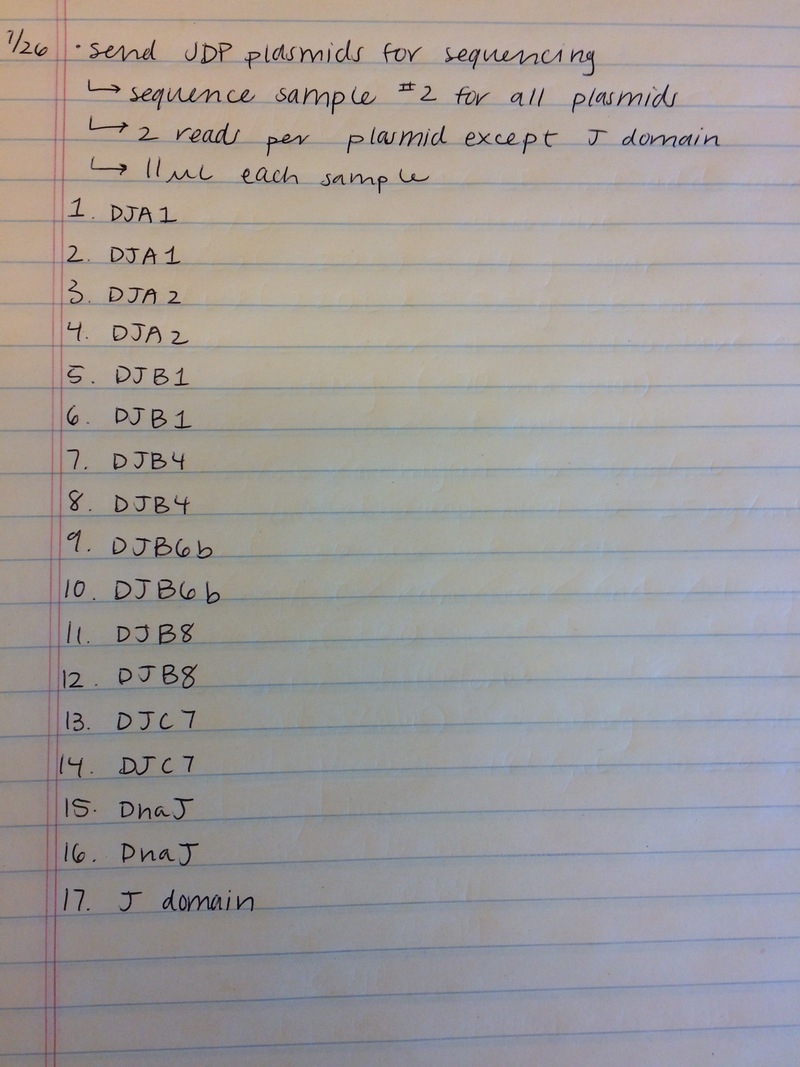 7/26 · send JDP plasmids for sequencing
↳ sequence sample #2 for all plasmids
↳ 2 reads per plasmid except J domain
↳ 11 uL each sample
1. DJA1
2. DJA1
3. DJA2
4. DJA2
5. DJB1
6. DJB1
7. DJB4
8. DJB4
9. DJB6b
10. DJB6b
11. DJB8
12. DJB8
13. DJC7
14. DJC7
15. DnaJ
16. DnaJ
17. J domain